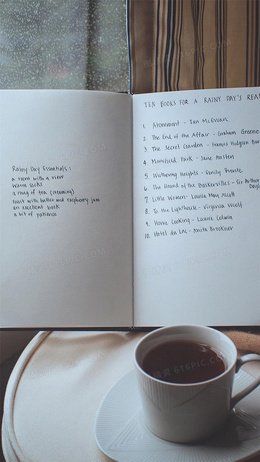 Rainy Day Essentials:
a room with a view
warm socks
a mug of tea (steaming)
toast with butter and raspberry jam
an excellent book
a bit of patience
TEN BOOKS FOR A RAINY DAY'S REA
1. Atonement - Ian McEwan
2. The End of the Affair - Graham Greene
3. The Secret Garden - Frances Hodgson Bur
4. Mansfield Park - Jane Austen
5. Wuthering Heights - Emily Bronte
6. The Hound of the Baskervilles - Sir Arthur
Doyle
7. Little Women - Louisa May Alcott
8. To the Lighthouse - Virginia Woolf
9. Home Cooking - Laurie Colwin
10. Hotel du Lac - Anita Brookner